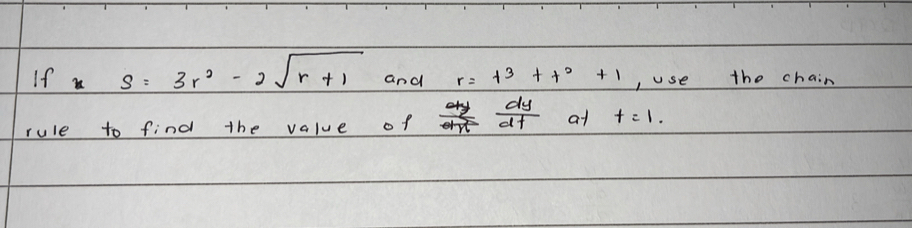 If S = 3r² - 2√(r+1) and r = t³ + t² + 1, use the chain
rule to find the value of dy/dt at t=1.